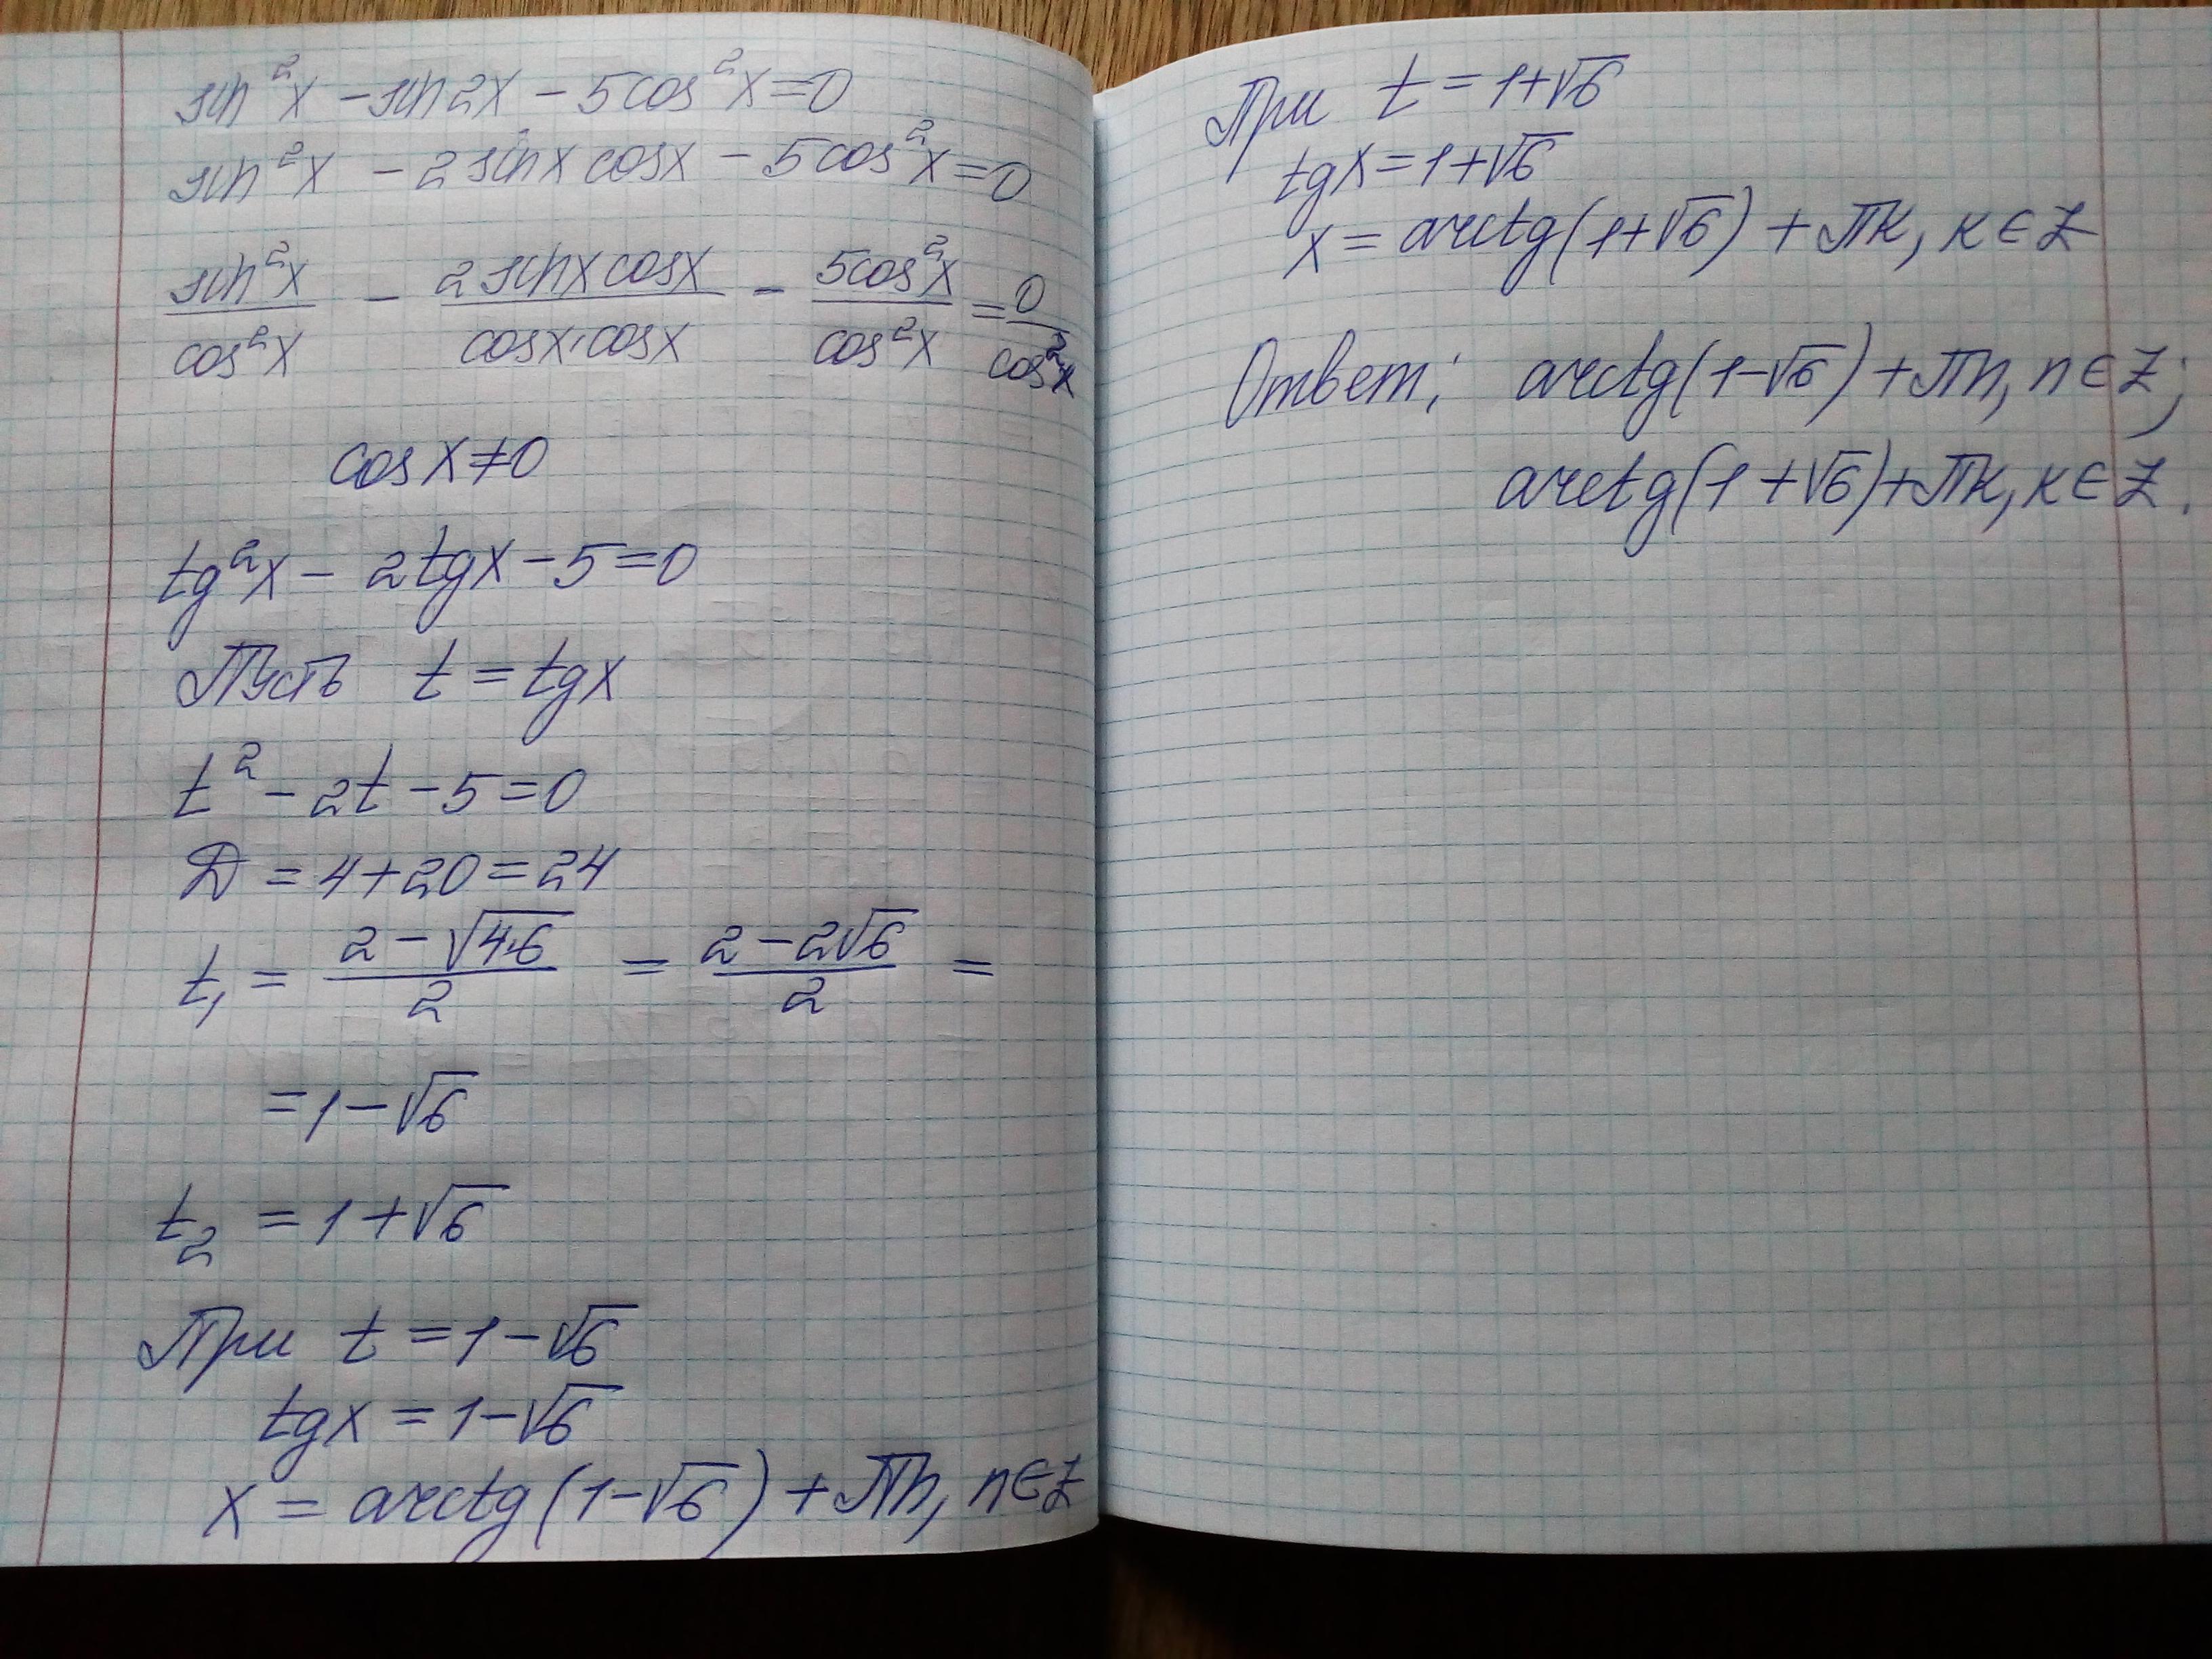 sin²x – sin2x – 5cos²x = 0
sin²x – 2sinx cosx – 5cos²x = 0
sin²x/cos²x – 2sinx cosx/cosx·cosx – 5cos²x/cos²x = 0/cos²x
cosx ≠ 0
tg²x – 2tgx – 5 = 0
Пусть t = tgx
t² – 2t – 5 = 0
Д = 4 + 20 = 24
t₁ = (2 – √4·6)/2 = (2 – 2√6)/2 =
= 1 – √6
t₂ = 1 + √6
При t = 1 – √6
tgx = 1 – √6
x = arctg(1 – √6) + Пn, n ∈ Z
При t = 1 + √6
tgx = 1 + √6
x = arctg(1 + √6) + Пк, к ∈ Z
Ответ: arctg(1 – √6) + Пn, n ∈ Z;
arctg(1 + √6) + Пк, к ∈ Z.